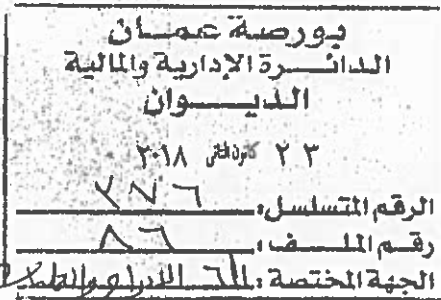 بورصة عمان
الدائرة الإدارية والمالية
الديوان
٢٣ كانون الثاني ٢٠١٨
الرقم المتسلسل: ٣٧٦
رقم الملف: ٨٦
الجهة المختصة: الإدراج